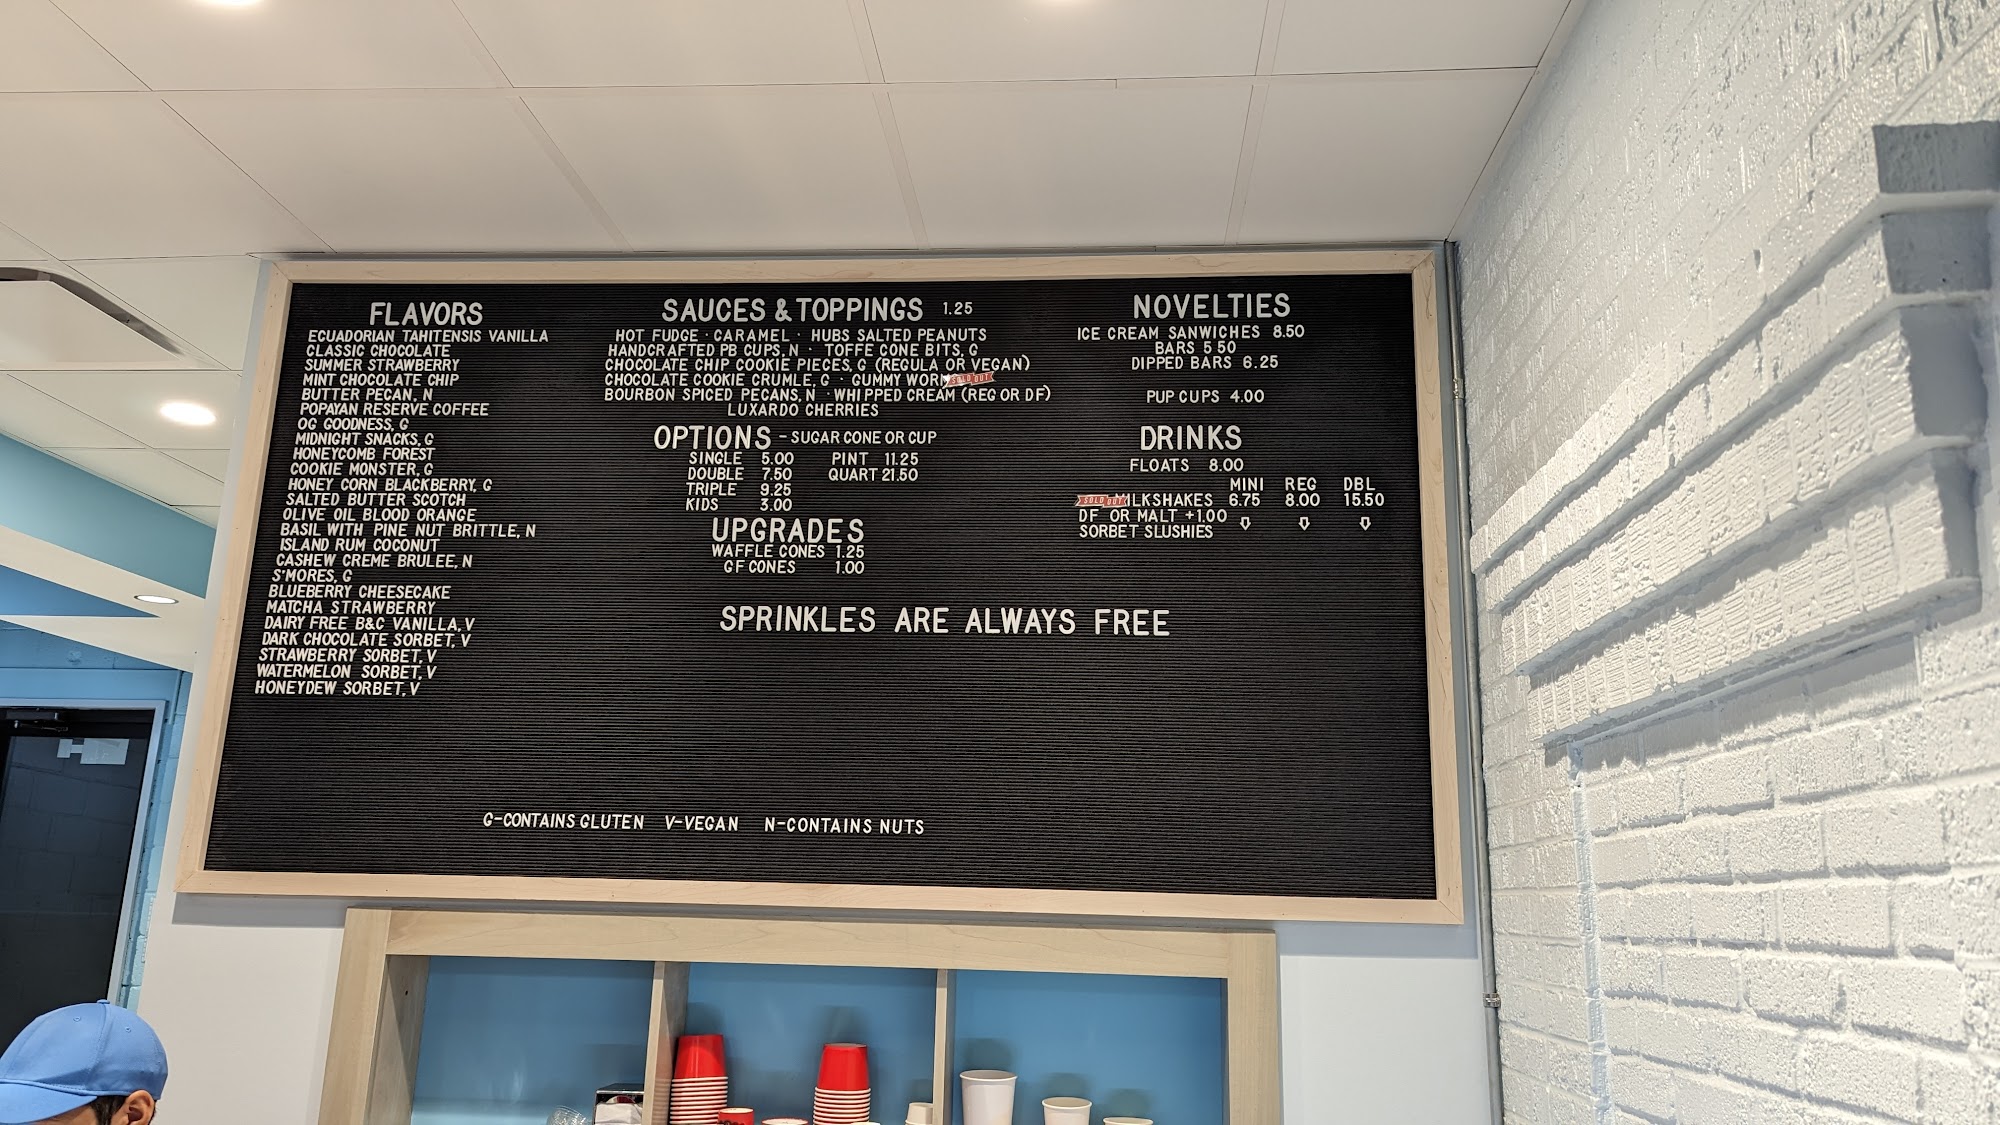 FLAVORS
ECUADORIAN TAHITENSIS VANILLA
CLASSIC CHOCOLATE
SUMMER STRAWBERRY
MINT CHOCOLATE CHIP
BUTTER PECAN, N
POPAYAN RESERVE COFFEE
OG GOODNESS, G
MIDNIGHT SNACKS, G
HONEYCOMB FOREST
COOKIE MONSTER, G
HONEY CORN BLACKBERRY, G
SALTED BUTTER SCOTCH
OLIVE OIL BLOOD ORANGE
BASIL WITH PINE NUT BRITTLE, N
ISLAND RUM COCONUT
CASHEW CREME BRULEE, N
S'MORES, G
BLUEBERRY CHEESECAKE
MATCHA STRAWBERRY
DAIRY FREE B&C VANILLA, V
DARK CHOCOLATE SORBET, V
STRAWBERRY SORBET, V
WATERMELON SORBET, V
HONEYDEW SORBET, V
SAUCES & TOPPINGS 1.25
HOT FUDGE · CARAMEL · HUBS SALTED PEANUTS
HANDCRAFTED PB CUPS, N · TOFFE CONE BITS, G
CHOCOLATE CHIP COOKIE PIECES, G (REGULA OR VEGAN)
CHOCOLATE COOKIE CRUMLE, G · GUMMY WORM SOLD OUT
BOURBON SPICED PECANS, N · WHIPPED CREAM (REG OR DF)
LUXARDO CHERRIES
OPTIONS - SUGAR CONE OR CUP
SINGLE 5.00 PINT 11.25
DOUBLE 7.50 QUART 21.50
TRIPLE 9.25
KIDS 3.00
UPGRADES
WAFFLE CONES 1.25
GF CONES 1.00
SPRINKLES ARE ALWAYS FREE
NOVELTIES
ICE CREAM SANWICHES 8.50
BARS 5 50
DIPPED BARS 6.25
PUP CUPS 4.00
DRINKS
FLOATS 8.00
MINI REG DBL
SOLD OUT MILKSHAKES 6.75 8.00 15.50
DF OR MALT +1.00
SORBET SLUSHIES
G-CONTAINS GLUTEN V-VEGAN N-CONTAINS NUTS